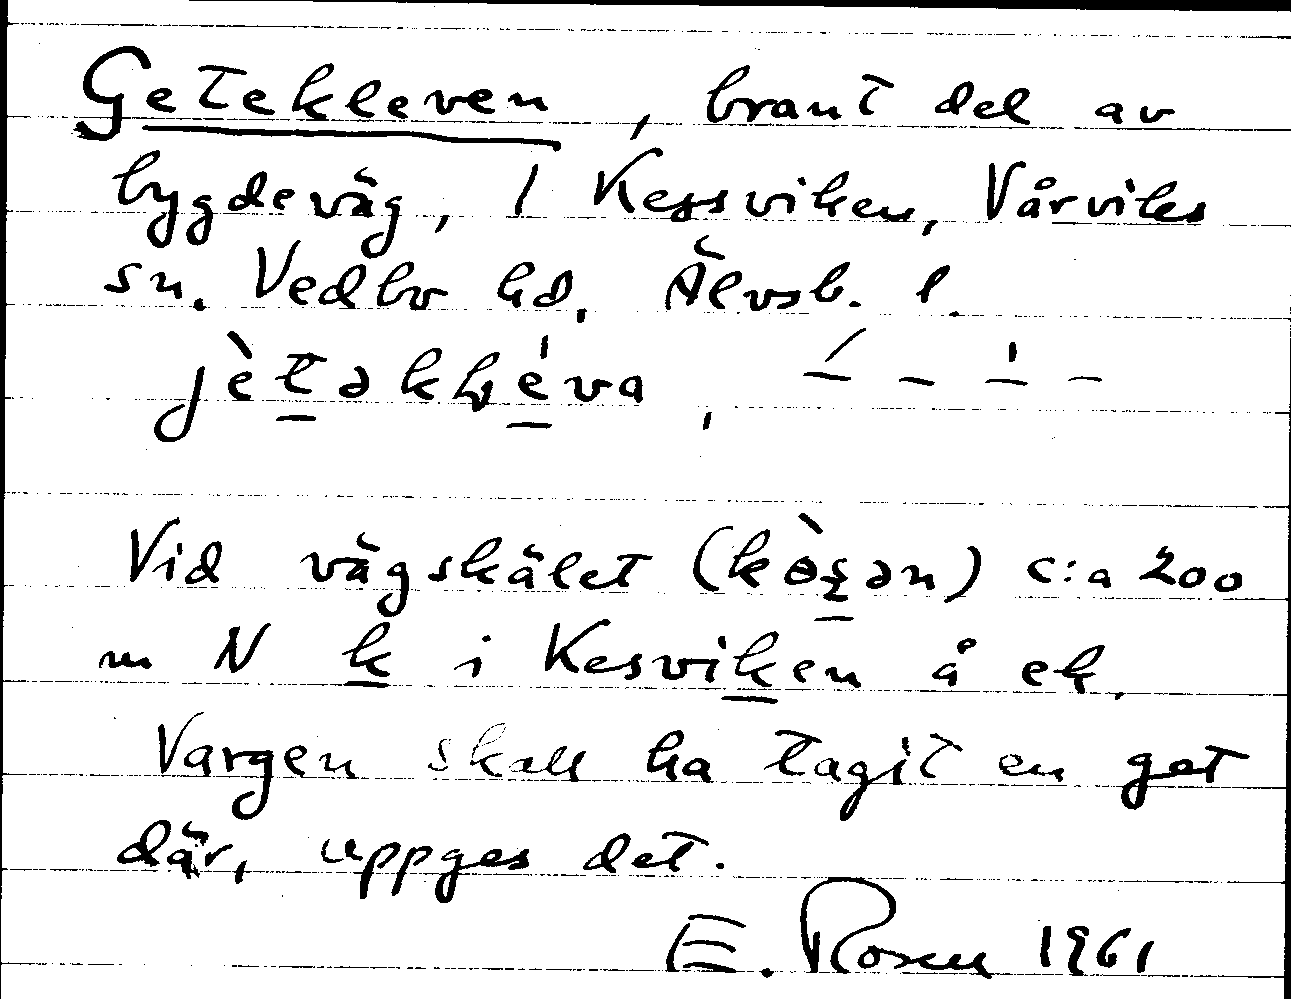 Getekleven, brant del av
bygdeväg, 1 Kessviken, Vårviks
sn. Vedbo hd, Älvsb. l.
Vid vägskälet c:a 200
m N k i Kesviken å ek.
Vargen skall ha tagit en get
där, uppges det.
E. Rosen 1961